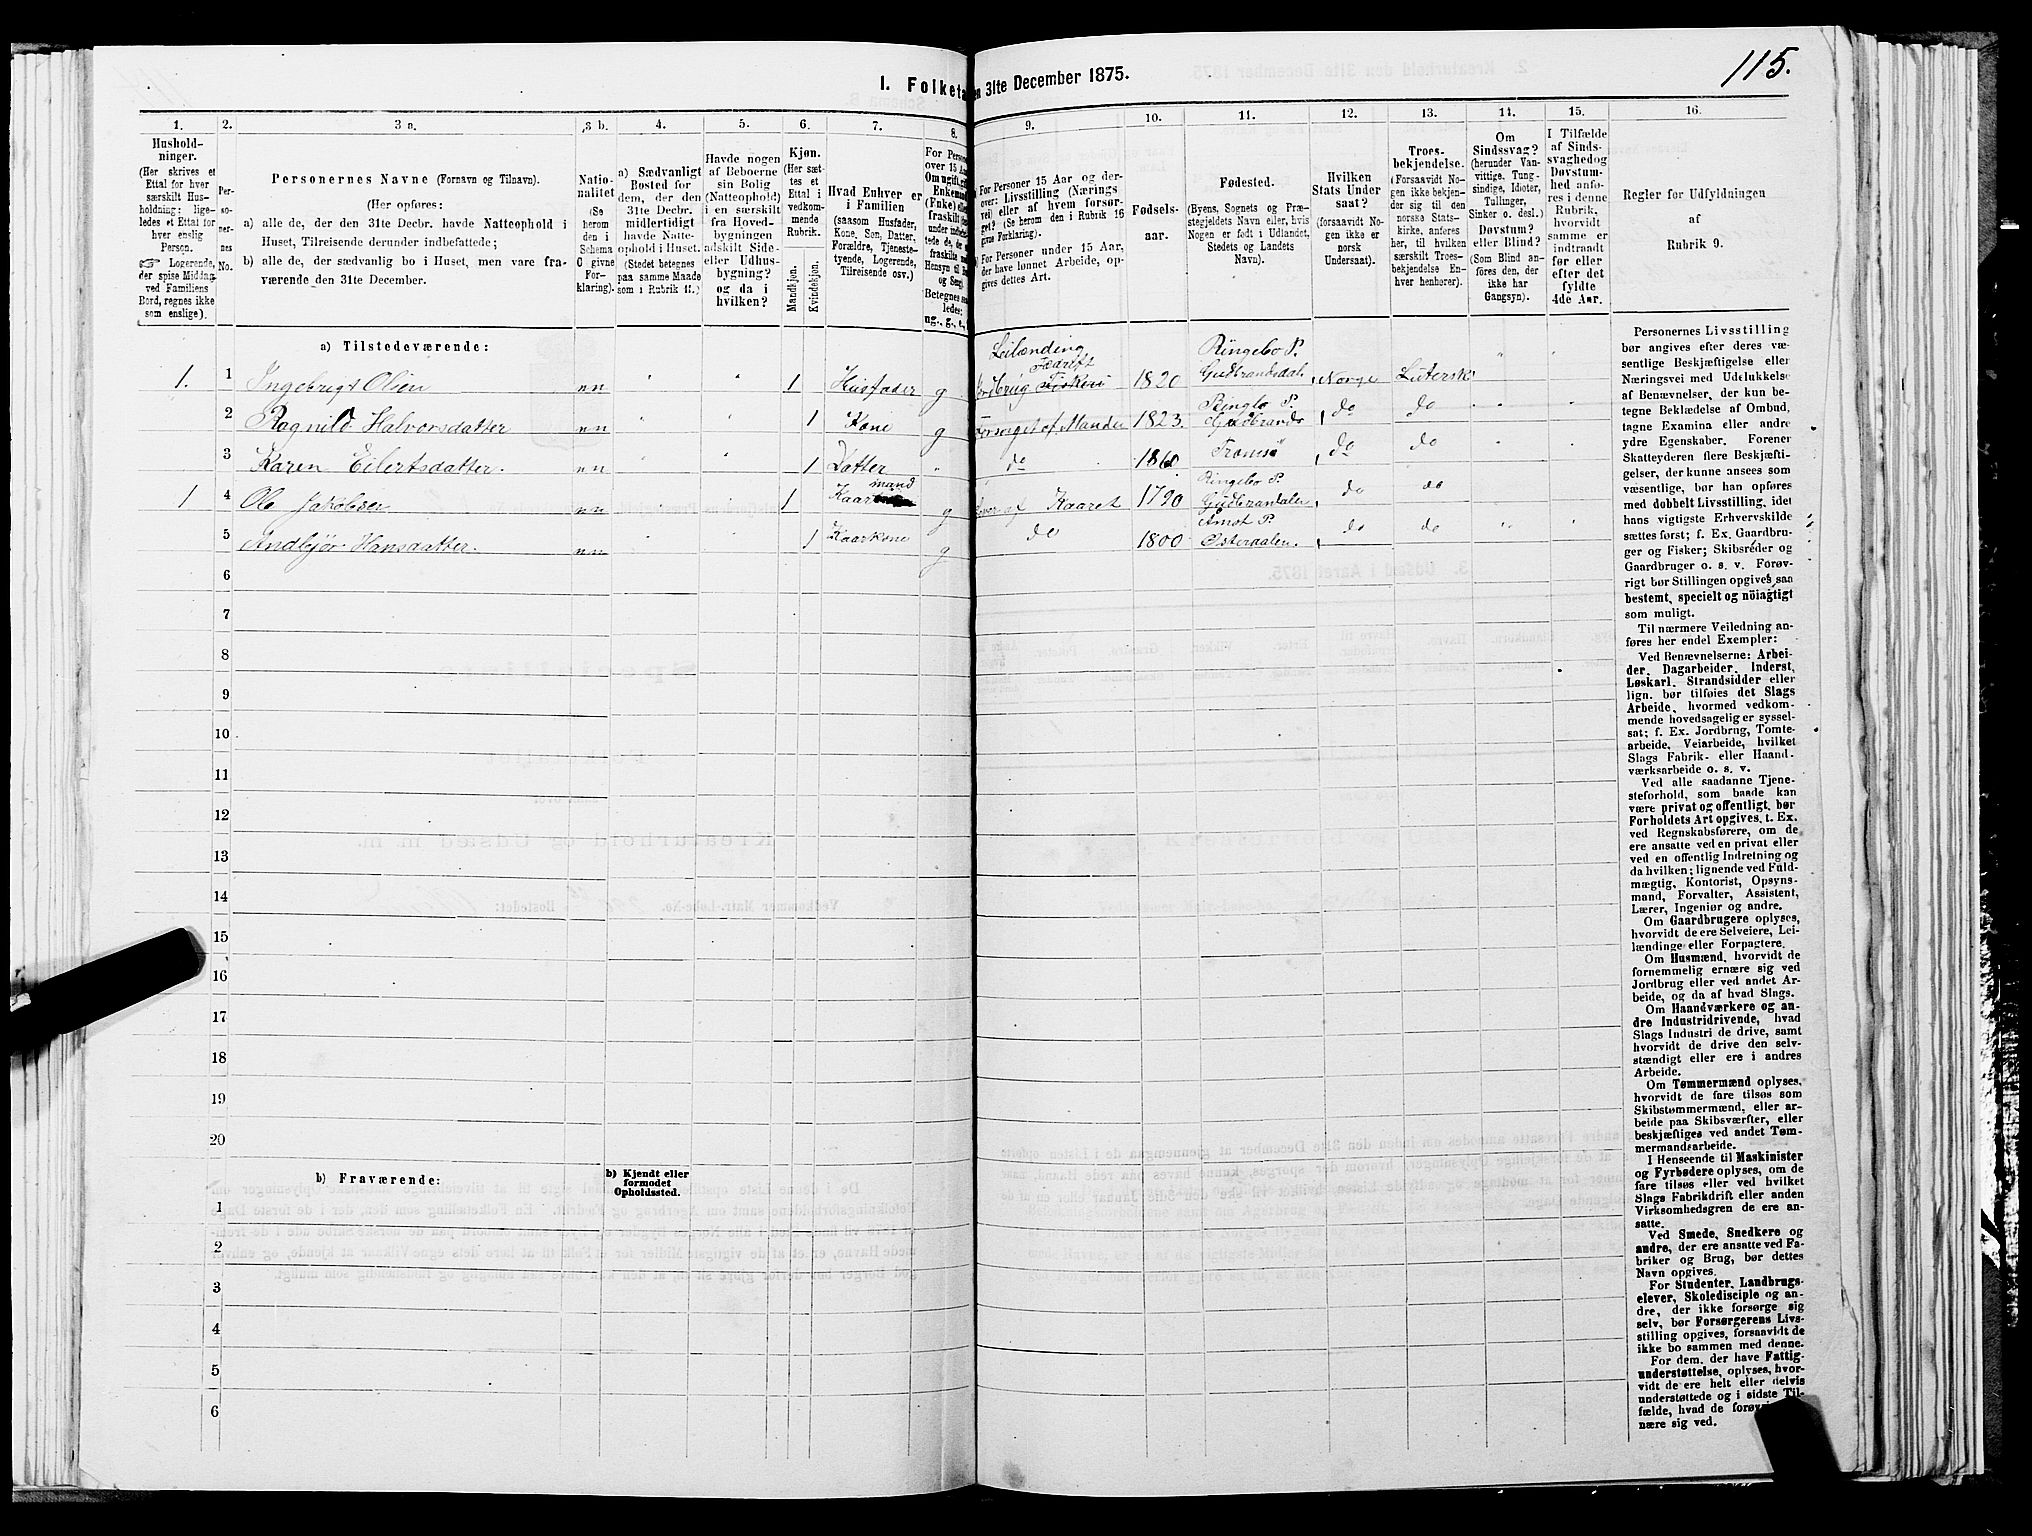 115.
I. Folketa
en 31te December 1875.
1.
2.
3 a.
3 b.
4.
5.
6.
7.
8.
9.
10.
11.
12.
13.
14.
15.
16.
Hushold-
ninger.
(Her skrives et
Ettal for hver
særskilt Hus-
holdning; lige-
ledes et Ettal for
hver enslig
Person.
☞ Logerende,
der spise Middag
ved Familiens
Bord, regnes ikke
som enslige).
Per-
so-
ner-
nes
No.
Personernes Navne (Fornavn og Tilnavn).
(Her opføres:
a) alle de, der den 31te Decbr. havde Natteophold i
Huset, Tilreisende derunder indbefattede;
b) alle de, der sædvanlig bo i Huset, men vare fra-
værende den 31te December.
Natio-
nalitet
(Se
herom
den i
Schema
C givne
For-
klaring).
a) Sædvanligt
Bosted for
dem, der den
31te Decbr.
midlertidigt
havde Natte-
ophold i Huset.
(Stedet betegnes
paa samme Maade
som i Rubrik 11.)
Havde nogen
af Beboerne
sin Bolig
(Natteophold)
i en særskilt
fra Hoved-
bygningen
adskilt Side-
eller Udhus-
bygning?
og da i
hvilken?
Kjøn.
(Her sæt-
tes et
Ettal i
vedkom-
mende
Rubrik.
Mandkjøn.
Kvindekjøn.
Hvad Enhver er
i Familien
(saasom Husfader,
Kone, Søn, Datter,
Forældre, Tjeneste-
tyende, Logerende,
Tilreisende osv.)
For Person
over 15 Aar
Om ugift, gi
Enkemand
(Enke) ell
fraskilt
Betegnes saa
ledes:
ug., g., e.,
For Personer 15 Aar og der-
over: Livsstilling (Nærings
vei) eller af hvem forsør-
get? (Se herom den i Rubrik 16
givne Forklaring).
For Personer under 15 Aar,
der have lønnet Arbeide, op-
gives dettes Art.
Fødsels-
aar.
Fødested.
(Byens, Sognets og Præ-
stegjeldets Navn eller, hvis
Nogen er født i Udlandet,
Stedets og Landets
Navn).
Hvilken
Stats Under
saat?
(forsaavidt No-
gen ikke er
norsk
Undersaat).
Troes-
bekjendelse.
(Forsaavidt No-
gen ikke bekjen-
der sig til den
norske Stats-
kirke, anføres
her, til hvilken
særskilt Troes-
bekjendelse En-
hver henhører).
Om
Sindssvag?
(herunder Van-
vittige, Tung-
sindige, Idioter,
Tullinger,
Sinker o. desl.)
Døvstum?
eller Blind?
(Som Blind an-
føres den, der
ikke har
Gangsyn).
I Tilfælde
af Sinds-
svaghed og
Døvstum-
hed anfø-
res i denne
Rubrik,
hvorvidt
samme er
indtraadt
før eller
efter det
fyldte
4de Aar.
Regler for Udfyldningen
af
Rubrik 9.
a) Tilstedeværende:
1. 1 Ingebrigt Olsen nn " " 1 Husfader g Leilænding Jordbrug Fædrift 1820 Ringebo P. Gudbrandsdal Norge Lutersk " "
2 Ragnild Halvorsdatter nn " " 1 Kone g Forsørget af Manden 1823. Ringbo P. Gudbrands do do " "
3 Karen Eilertsdatter. nn " " 1 Datter " do Tromsø do do " "
1 4 Ole Jakobsen nn " " 1 Kaarmand g Lever af Kaaret 1790 Ringebo P. Gudbrandalen do do " "
5 Hansdatter. nn " " 1 Kaarkone g do 1800 Åmot P. Østerdalen. do do " "
6
7
8
9
10
11
12
13
14
15
16
17
18
19
20
b) Fraværende:
b) Kjendt eller
formodet
Opholdssted.
1
2
3
4
5
6
Personernes Livsstilling
bør angives efter deres væ-
sentlige Beskjæftigelse eller
Næringsvei med Udelukkelse
af Benævnelser, der kun be-
tegne Beklædelse af Ombud,
tagne Examina eller andre
ydre Egenskaber. Forener
Skatteyderen flere Beskjæfti-
gelser, der kunne ansees som
væsentlige, bør han opføres
med dobbelt Livsstilling, idet
hans vigtigste Erhvervskilde
sættes først; f. Ex. Gaardbru-
ger og Fisker; Skibsreder og
Gaardbruger o. s. v. Forøv-
rigt bør Stillingen opgives saa
bestemt, specielt og nöiagtigt
som muligt.
Til nærmere Veiledning an-
føres her endel Exempler:
Ved Benævnelserne: Arbei-
der, Dagarbeider, Inderst,
Løskarl, Strandsidder eller
lign. bør tilføies det Slags
Arbeide, hvormed vedkom-
mende hovedsagelig er syssel-
sat; f. Ex. Jordbrug, Tomte-
arbeide, Veiarbeide, hvilket
Slags Fabrik- eller Haand-
værksarbeide o. s. v.
Ved alle saadanne Tjene-
steforhold, som baade kan
være privat og offentligt, bør
Forholdets Art opgives, t. Ex.
ved Regnskabsførere, om de
ere ansatte ved en privat eller
ved en offentlig Indretning og
da hvilken; lignende ved Fuld-
mægtig, Kontorist, Opsyns-
mand, Forvalter, Assistent,
Lærer, Ingeniør og andre.
Om Gaardbrugere oplyses,
hvorvidt de ere Selveiere, Lei-
lændinge eller Forpagtere.
Om Husmænd, hvorvidt de
fornemmelig ernære sig ved
Jordbrug eller ved andet Ar-
beide, og da af hvad Slags.
Om Haandværkere og an-
dre Industridrivende, hvad
Slags Industri de drive, samt
hvorvidt de drive den selv-
stændigt eller ere i andres
Arbeide.
Om Tømmermænd oplyses,
hvorvidt de fare tilsøs som
Skibstømmermænd, eller ar-
beide paa Skibsværfter, eller
beskjæftiges ved andet Tøm-
mermandsarbeide.
I Henseende til Maskinister
og Fyrbødere oplyses, om de
fare tilsøs eller ved hvilket
Slags Fabrikdrift eller anden
Virksomhedsgren de ere an-
satte.
Ved Smede, Snedkere og
andre, der ere ansatte ved Fa-
briker og Brug, bør dettes
Navn opgives.
For Studenter, Landbrugs-
elever, Skoledisciple og an-
dre, der ikke forsørge sig
selv, bør Forsørgerens Livs-
stilling opgives, forsaavidt de
ikke bo sammen med denne.
For dem, der have Fattig-
understøttelse, oplyses, hvor-
vidt de ere helt eller delvis
understøttede og i sidste Til-
fælde, hvad de forøvrigt
nære sig ved.